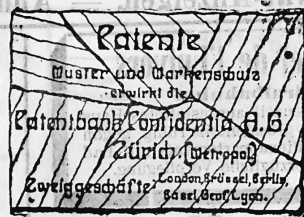 Patente
Muster und Markenschutz
erwirkt die
Patentbank Confidentia A.G
Zürich. (Metropol)
Zweiggeschäfte London, Brüssel, Berlin,
Basel, Genf, Lyon.